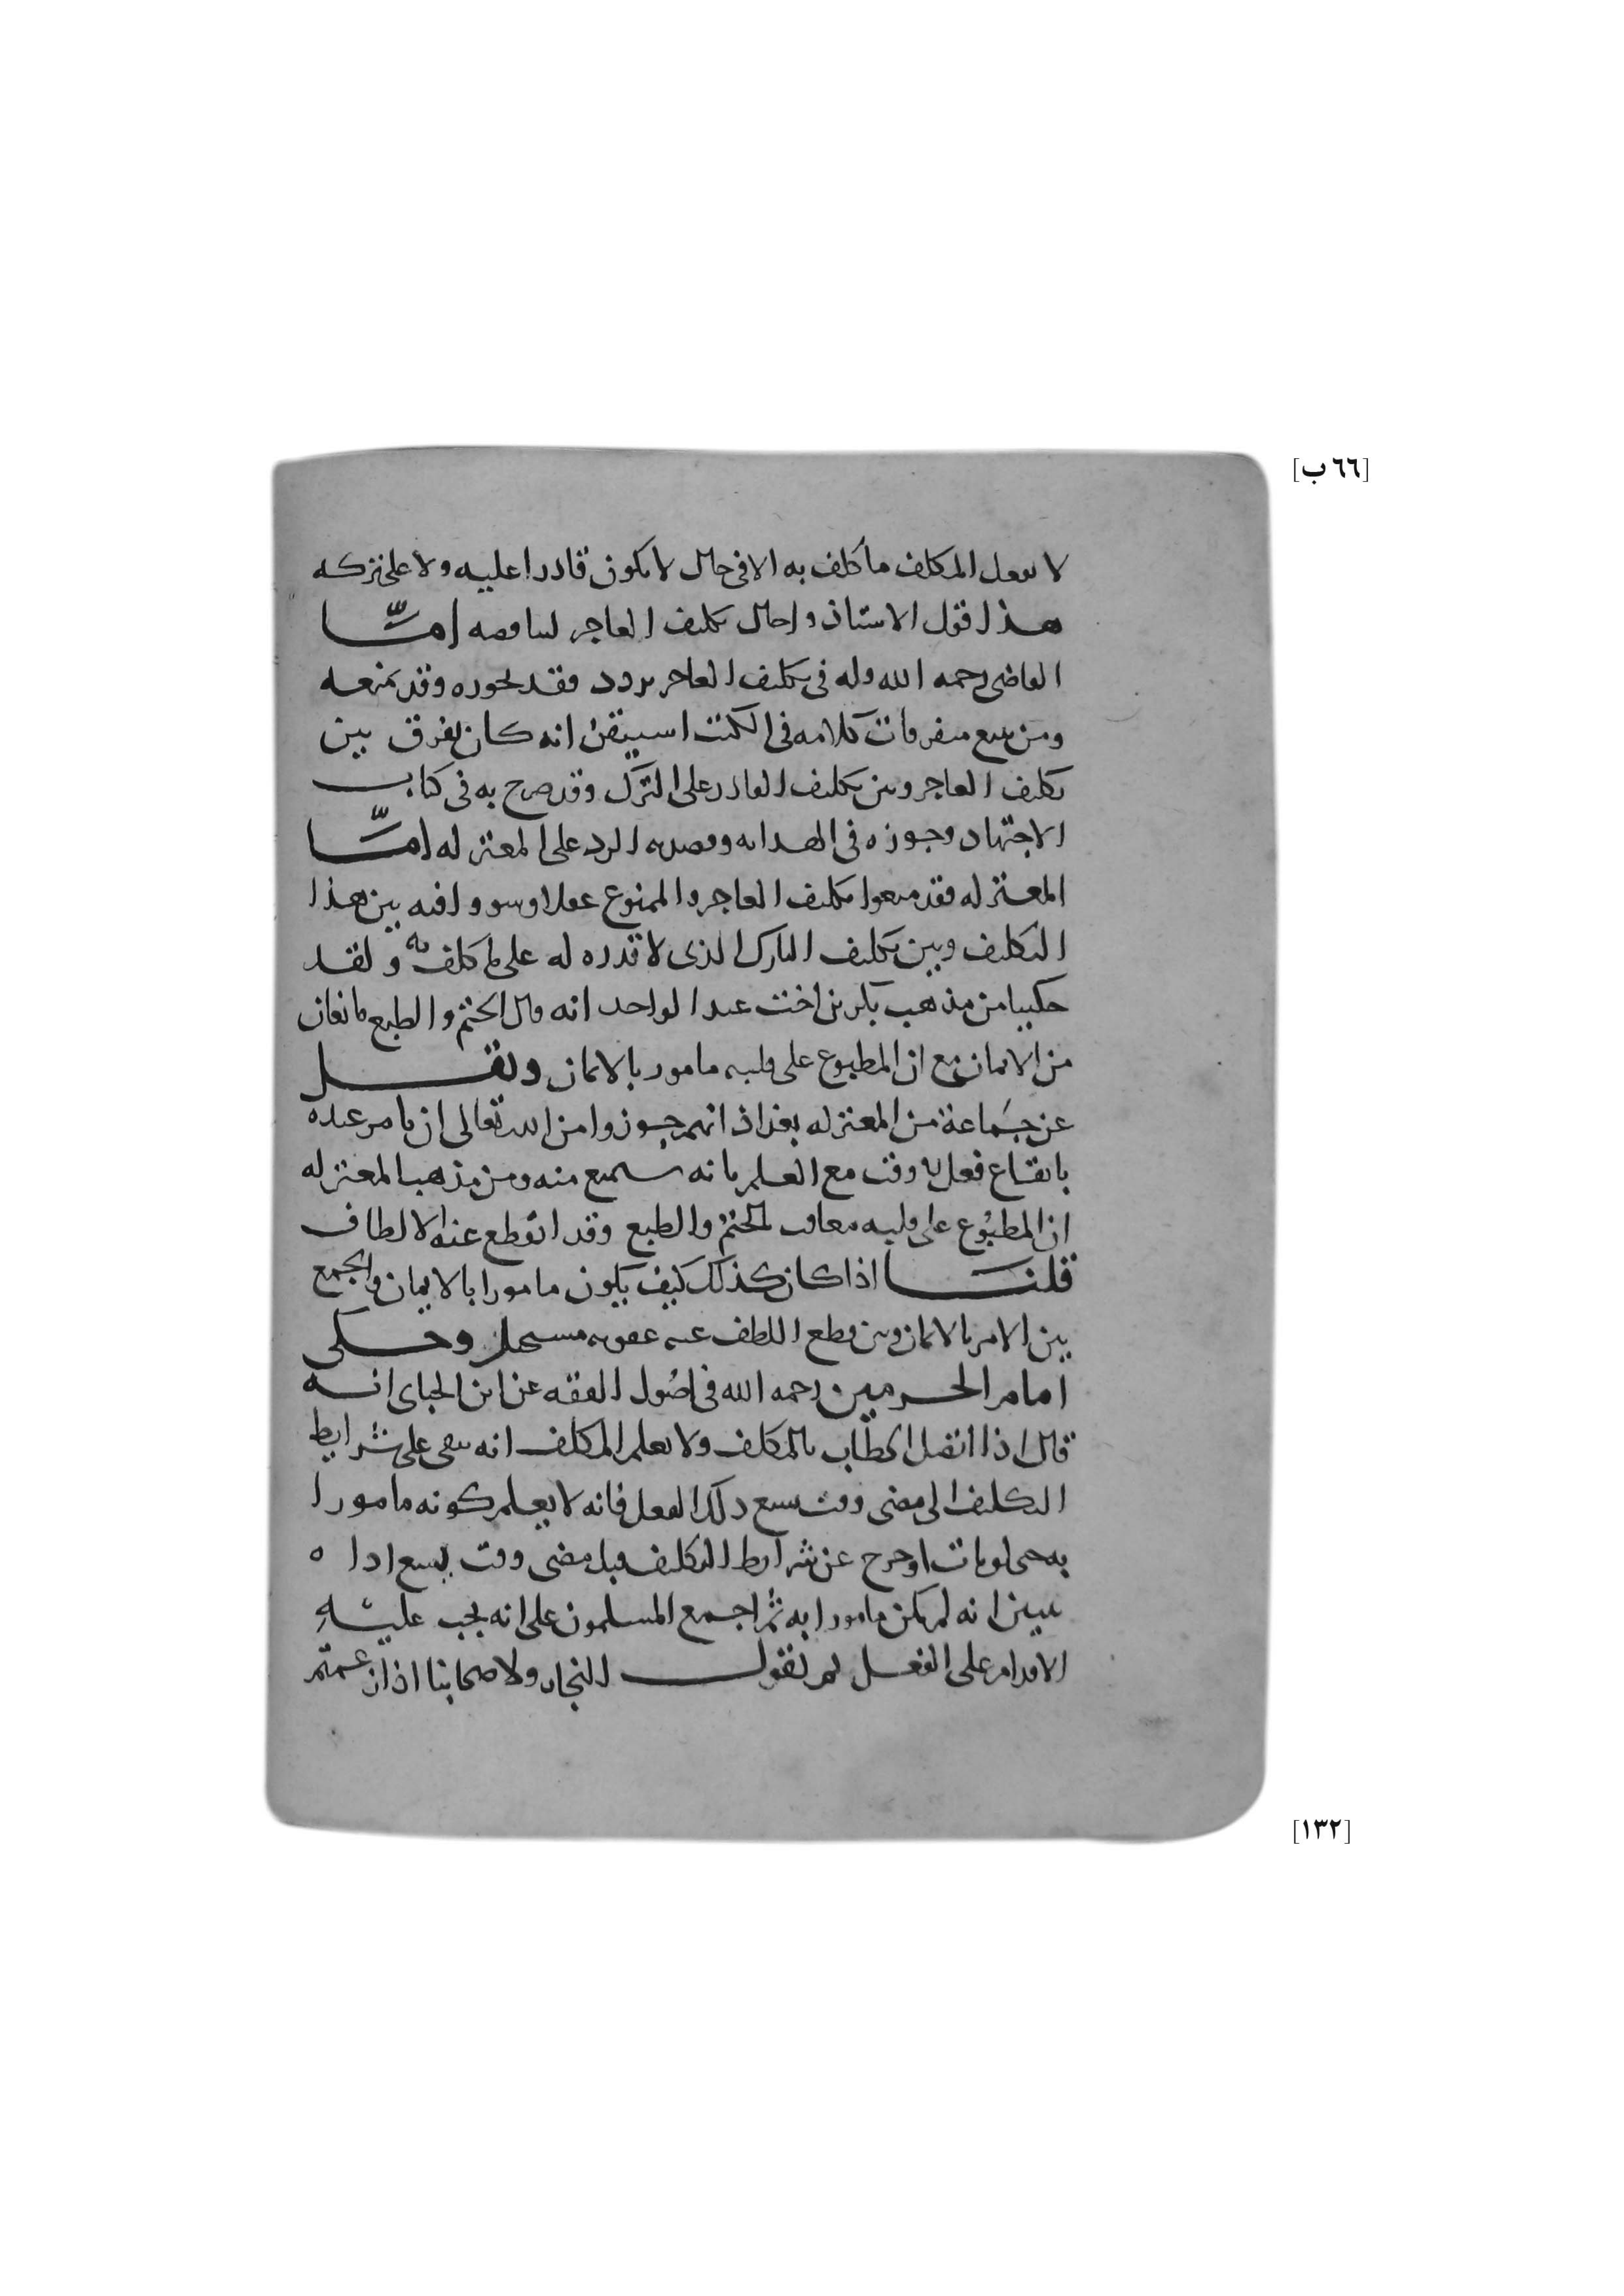 [٦٦ ب]
لا يفعل المكلف ما كلف به الا في حال لا يكون قادرا عليه ولا على تركه
هذا قول الاستاذ واحال تكليف العاجز لتناقضه امّا
القاضي رحمه الله وله في تكليف العاجز تردد فقد يجوزه وقد يمنعه
ومن تتبع متفرقات كلامه في الكتب استيقن انه كان يفرق بين
تكليف العاجز وبين تكليف القادر على الترك وقد صرح به في كتاب
الاجتهاد وجوزه في الهداية وقصده الرد على المعتزله امّا
المعتزله فقد منعوا تكليف العاجز والممنوع عقلا وسووا فيه بين هذا
التكليف وبين تكليف التارك الذي لا قدره له على ما كلف به ولقد
حكينا من مذهب بكر بن اخت عبد الواحد انه قال الختم والطبع مانعان
من الايمان مع ان المطبوع على قلبه مامور بالايمان ونقل
عن جماعة من المعتزله بغداذ انهم جوزوا من الله تعالى ان يامر عبده
بايقاع فعل في وقت مع العلم بانه سيمنع منه ومن مذهب المعتزله
ان المطبوع على قلبه معاقب بالختم والطبع وقد انقطع عنه الالطاف
قلنا اذا كان كذلك كيف يكون مامورا بالايمان والجمع
بين الامر بالايمان وبين قطع اللطف عنه عقوبه مستحيل وحكى
امام الحرمين رحمه الله في اصول الفقه عن ابن الجباى انه
قال اذا اتصل الخطاب بالمكلف ولا يعلم المكلف انه يبقى على شرايط
التكليف الى مضي وقت يسع ذلك الفعل فانه لا يعلم كونه مامورا
به حتى لو مات او خرج عن شرايط التكليف قبل مضي وقت يسع اداه
تبين انه لم يكن مامورا به ثم اجمع المسلمون على انه يجب عليه
الاقدام على الفعل ثم نقول للنجار ولاصحابنا اذا زعمتم
[١٣٢]